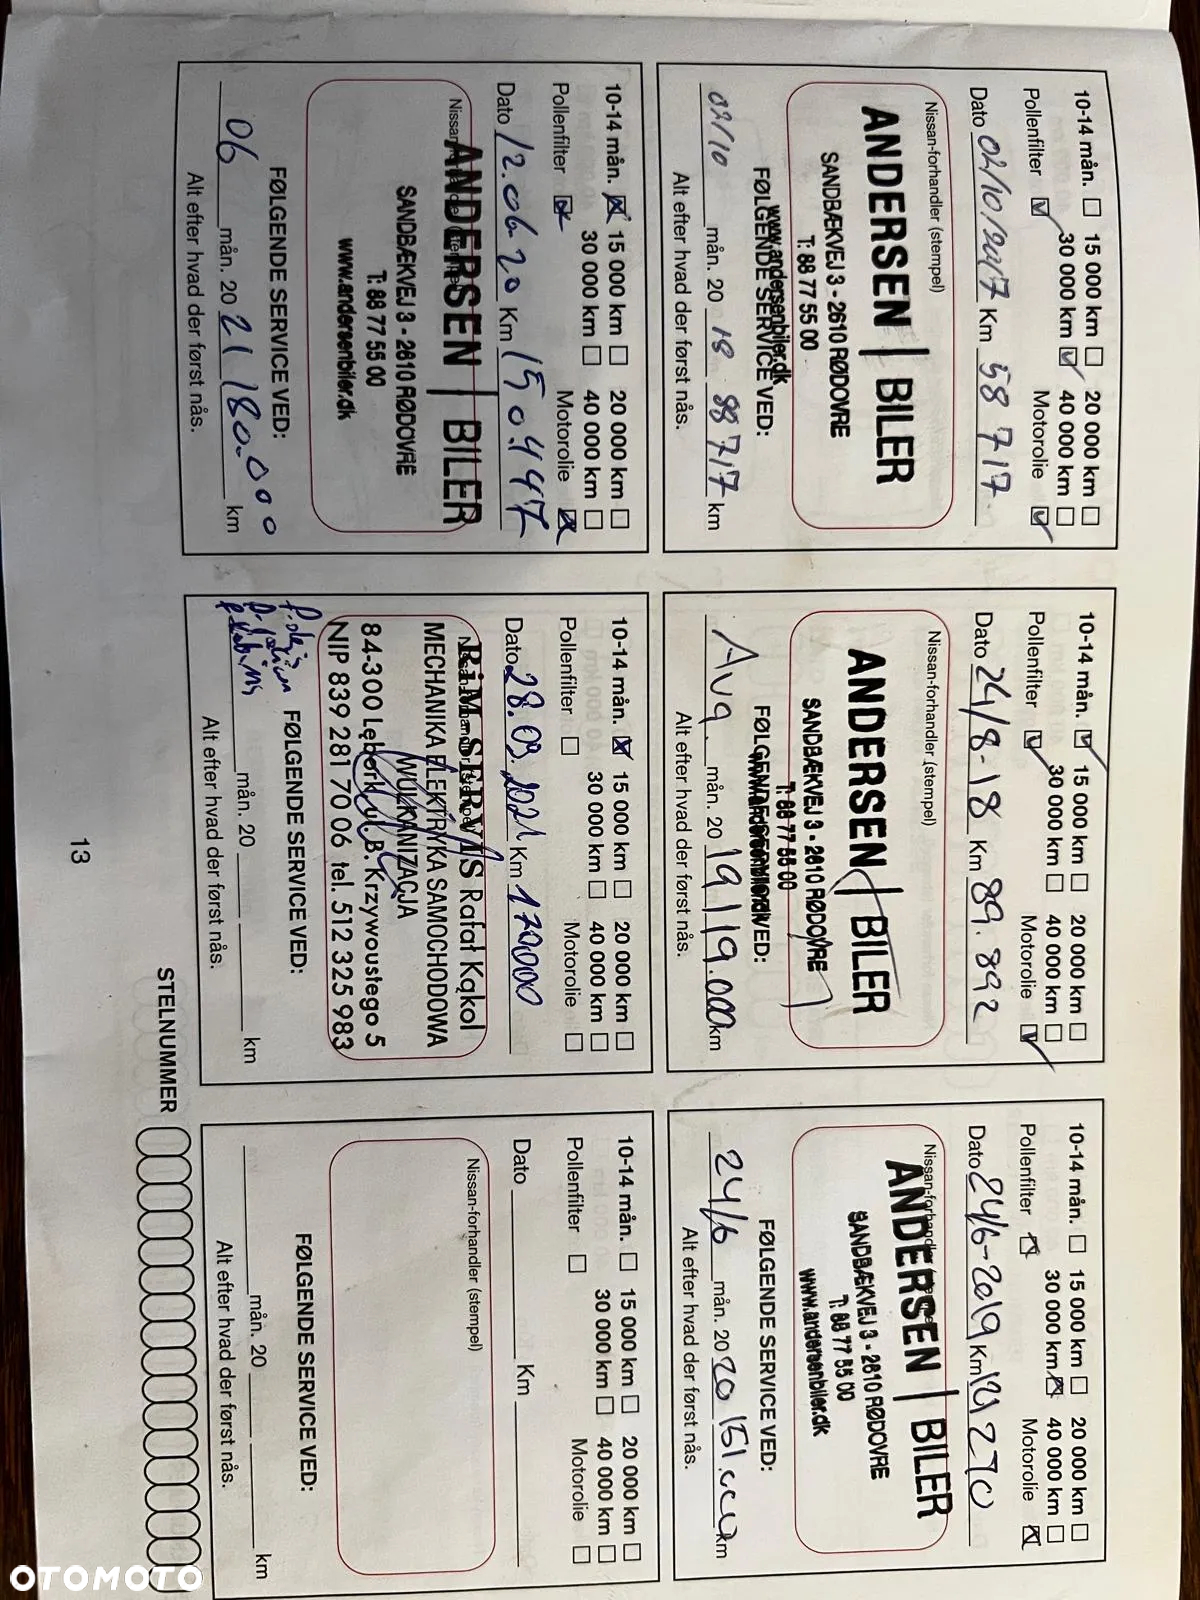 10-14 mån. ☐ 15 000 km ☐ 20 000 km ☐
30 000 km ☑ 40 000 km ☐
Pollenfilter ☑ Motorolie ☑
Dato 02/10/2017 Km 58 717
Nissan-forhandler (stempel)
ANDERSEN | BILER
SANDBÆKVEJ 3 - 2610 RØDOVRE
T: 88 77 55 00
www.andersenbiler.dk
FØLGENDE SERVICE VED:
02/10 mån. 20 18 88 717 km
Alt efter hvad der først nås.
10-14 mån. ☑ 15 000 km ☐ 20 000 km ☐
30 000 km ☐ 40 000 km ☐
Pollenfilter ☑ Motorolie ☑
Dato 24/8-18 Km 89.892
Nissan-forhandler (stempel)
ANDERSEN | BILER
SANDBÆKVEJ 3 - 2610 RØDOVRE
T: 88 77 55 00
www.andersenbiler.dk
FØLGENDE SERVICE VED:
Aug. mån. 20 19 119.000 km
Alt efter hvad der først nås.
10-14 mån. ☐ 15 000 km ☐ 20 000 km ☐
30 000 km ☒ 40 000 km ☐
Pollenfilter ☒ Motorolie ☒
Dato 24/6-2019 Km 121 270
Nissan-forhandler (stempel)
ANDERSEN | BILER
SANDBÆKVEJ 3 - 2610 RØDOVRE
T: 88 77 55 00
www.andersenbiler.dk
FØLGENDE SERVICE VED:
24/6 mån. 20 20 151.000 km
Alt efter hvad der først nås.
10-14 mån. ☒ 15 000 km ☐ 20 000 km ☐
30 000 km ☐ 40 000 km ☐
Pollenfilter ☒ Motorolie ☒
Dato 12.06-20 Km 150.447
Nissan-forhandler (stempel)
ANDERSEN | BILER
SANDBÆKVEJ 3 - 2610 RØDOVRE
T: 88 77 55 00
www.andersenbiler.dk
FØLGENDE SERVICE VED:
06 mån. 20 21 180.000 km
Alt efter hvad der først nås.
10-14 mån. ☒ 15 000 km ☐ 20 000 km ☐
30 000 km ☐ 40 000 km ☐
Pollenfilter ☐ Motorolie ☐
Dato 28.09.2021 Km 170000
Nissan-forhandler (stempel)
RiM-SERVIS Rafał Kąkol
MECHANIKA ELEKTRYKA SAMOCHODOWA
WULKANIZACJA
84-300 Lębork ul. B. Krzywoustego 5
NIP 839 281 70 06 tel. 512 325 983
FØLGENDE SERVICE VED:
mån. 20 km
Alt efter hvad der først nås.
10-14 mån. ☐ 15 000 km ☐ 20 000 km ☐
30 000 km ☐ 40 000 km ☐
Pollenfilter ☐ Motorolie ☐
Dato Km
Nissan-forhandler (stempel)
FØLGENDE SERVICE VED:
mån. 20 km
Alt efter hvad der først nås.
STELNUMMER
13
OTOMOTO